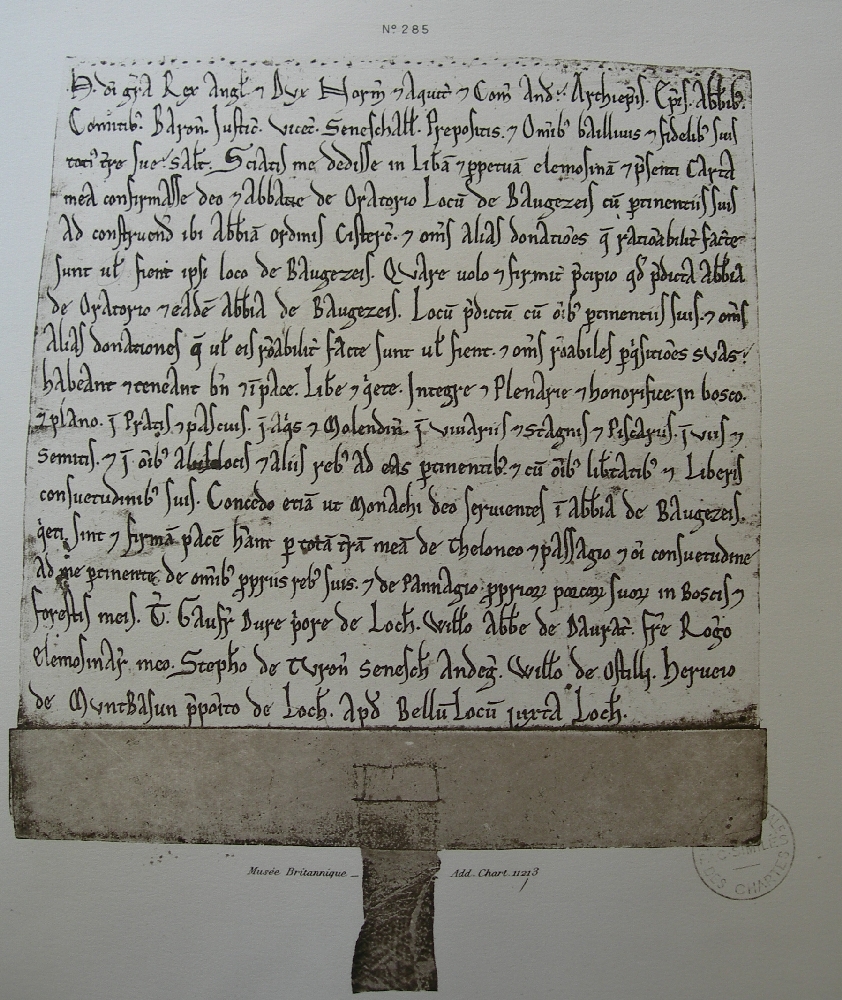 Nº 285
H. di gra Rex Angl. ⁊ Dux Norm̄ ⁊ Aquit̄ ⁊ Com̄ And. Archiepis. Epis. Abbib.
Comitib. Baron. Justic̄. Vicec̄. Seneschall. Prepositis. ⁊ Omib bailliuis ⁊ fidelib suis
toti tre sue sal̄t. Sciatis me dedisse in Libā ⁊ ppetuā elemosinā ⁊ psenti Carta
mea confirmasse deo ⁊ Abbatie de Oratorio Locū de Baugezeis cū ptinentiis suis
Ad construend ibi Abbiā ordinis Cisterc̄. ⁊ om̄s alias donatioēs q̄ rationabilit facte
sunt ul fient ipsi loco de Baugezeis. Quare uolo ⁊ firmit pcipio qd pdicta Abbia
de Oratorio ⁊ eadē Abbia de Baugezeis. Locū pdictū cū oib ptinentiis suis. ⁊ om̄s
Alias donationes q̄ ul eis roābilit facte sunt ul fient. ⁊ om̄s roābiles pqisitioēs suas.
habeant ⁊ teneant bn̄ ⁊ ī pace. Libe ⁊ qete. Integre ⁊ Plenarie ⁊ honorifice. in bosco.
⁊ plano. ī Pratis ⁊ pascuis. ī aqis ⁊ Molendin. ī viuariis ⁊ stagnis ⁊ Piscariis. ī viis ⁊
Semitis. ⁊ ī oib aliis locis ⁊ aliis reb ad eas ptinentib ⁊ cū oib libtatib ⁊ Liberis
consuetudinib suis. Concedo etiā ut Monachi deo seruientes ī abbia de Baugezeis.
qeti sint ⁊ firmā pacē hant p totā trā meā de theloneo ⁊ passagio ⁊ oi consuetudine
Ad me ptinente de omib ppriis reb suis. ⁊ de Pannagio pprioꝝ porcoꝝ suoꝝ in Boscis ⁊
forestis meis. T. Gaufr Bure pore de Loch. Willo Abbe de Baurac̄. fre Rogo
elemosinar meo. Stepho de Turon senesch Andeg. Willo de Ostilli. herueio
de Muntbasun ppoito de Loch. Apd Bellū Locū juxta Loch.
Musée Britannique _ Add. Chart. 11213
DES CHARTES